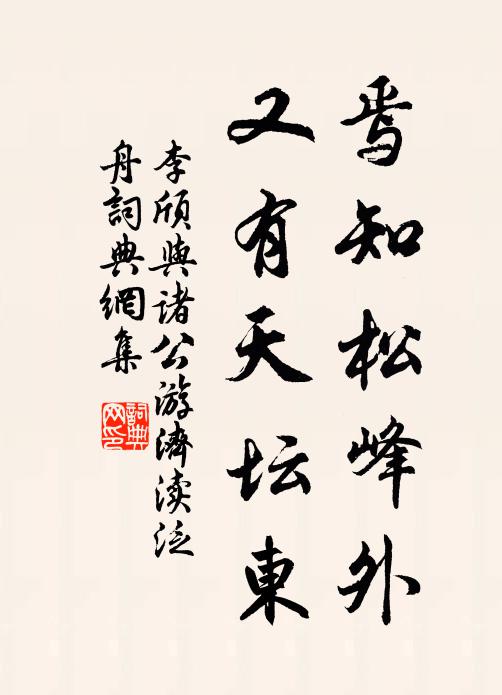 焉知松峰外
又有天坛東
李頎與諸公游濟渎泛
舟詞典網集
詞典网印